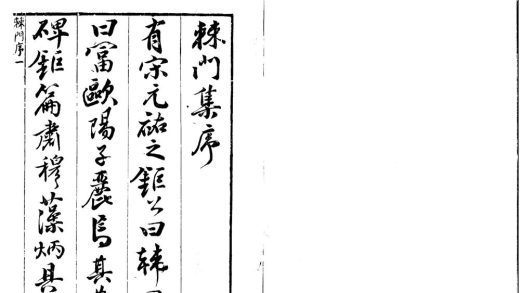 棘門集序
有宋元祐之鉅公曰韩
曰富歐陽子麗焉其
碑鉅篇肅穆藻炳具
棘門序一